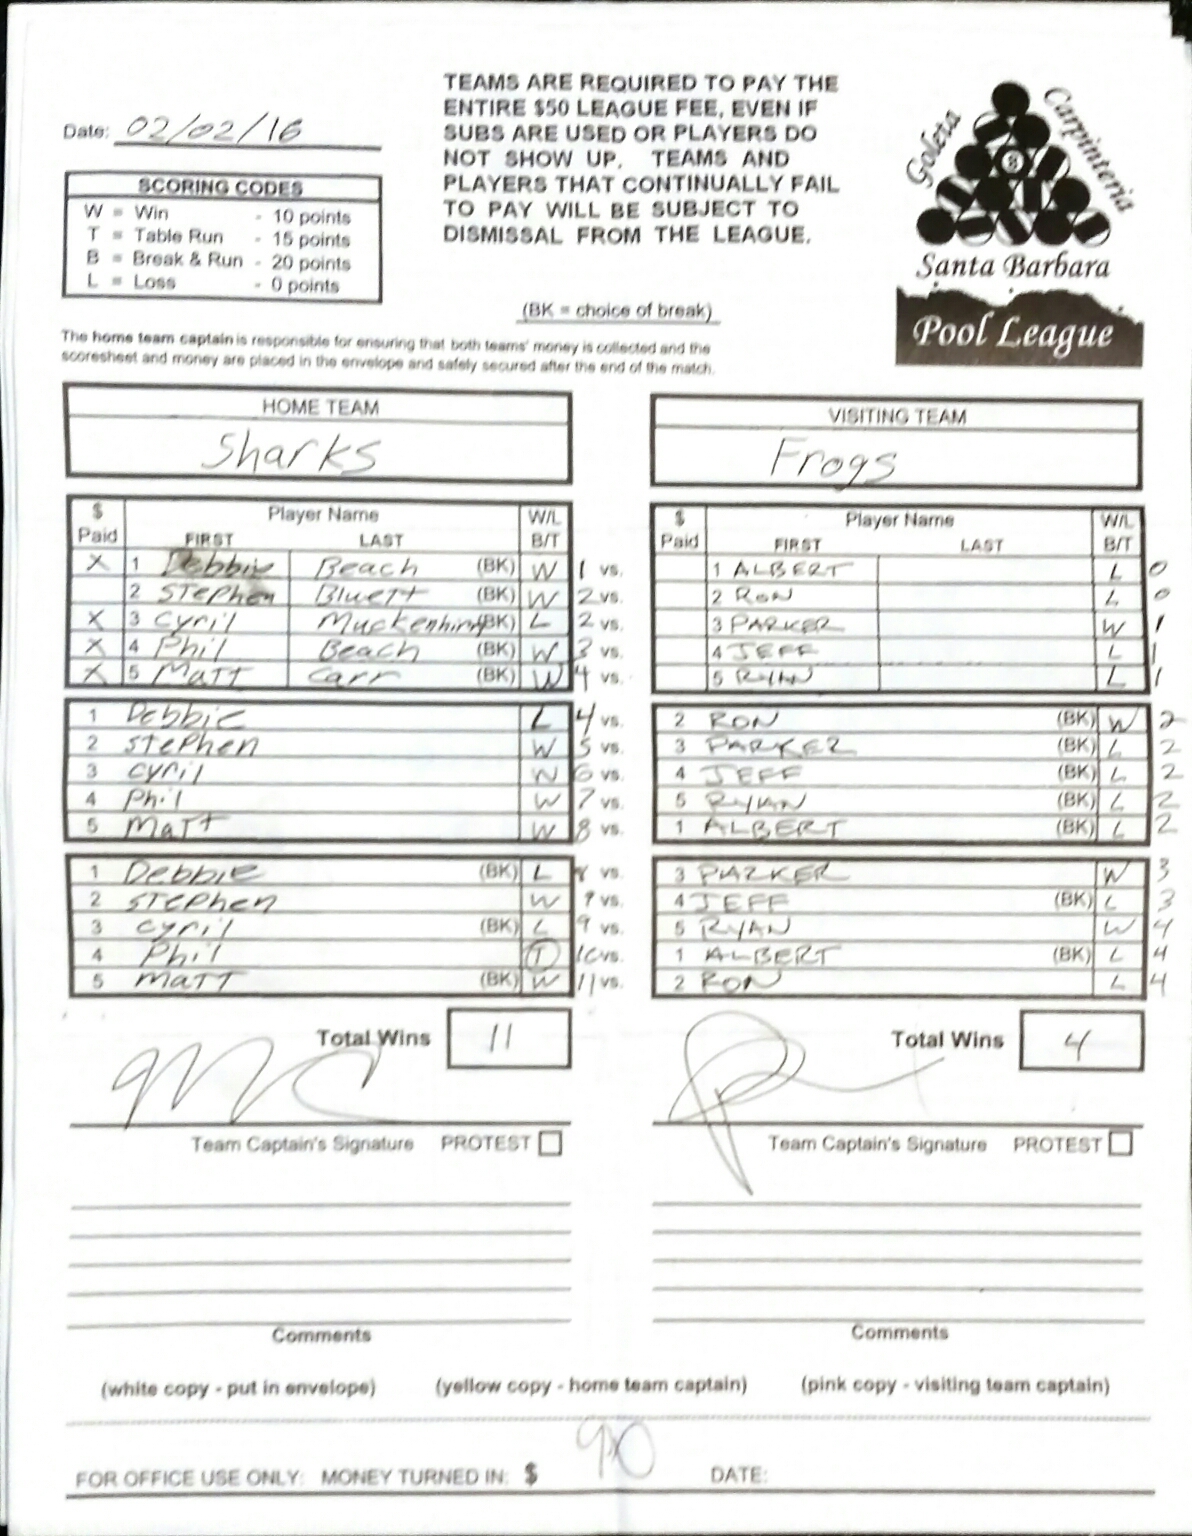 Date: 02/02/16
TEAMS ARE REQUIRED TO PAY THE
ENTIRE $50 LEAGUE FEE, EVEN IF
SUBS ARE USED OR PLAYERS DO
NOT SHOW UP. TEAMS AND
PLAYERS THAT CONTINUALLY FAIL
TO PAY WILL BE SUBJECT TO
DISMISSAL FROM THE LEAGUE.
Goleta Carpinteria
8
Santa Barbara
Pool League
SCORING CODES
W = Win - 10 points
T = Table Run - 15 points
B = Break & Run - 20 points
L = Loss - 0 points
(BK = choice of break)
The home team captain is responsible for ensuring that both teams' money is collected and the
scoresheet and money are placed in the envelope and safely secured after the end of the match.
HOME TEAM
Sharks
VISITING TEAM
Frogs
$ Paid Player Name FIRST LAST W/L B/T
$ Paid Player Name FIRST LAST W/L B/T
X 1 Debbie Beach (BK) W 1 vs. 1 ALBERT L 0
2 Stephen Bluett (BK) W 2 vs. 2 RON L 0
X 3 Cyril (BK) L 2 vs. 3 PARKER W 1
X 4 Phil Beach (BK) W 3 vs. 4 JEFF L 1
X 5 Matt Carr (BK) W 4 vs. 5 RYAN L 1
1 Debbie L 4 vs. 2 RON (BK) W 2
2 Stephen W 5 vs. 3 PARKER (BK) L 2
3 Cyril W 6 vs. 4 JEFF (BK) L 2
4 Phil W 7 vs. 5 RYAN (BK) L 2
5 Matt W 8 vs. 1 ALBERT (BK) L 2
1 Debbie (BK) L 8 vs. 3 PARKER W 3
2 Stephen W 9 vs. 4 JEFF (BK) L 3
3 Cyril (BK) L 9 vs. 5 RYAN W 4
4 Phil T 10 vs. 1 ALBERT (BK) L 4
5 Matt (BK) W 11 vs. 2 RON L 4
Total Wins 11
Total Wins 4
Team Captain's Signature PROTEST
Team Captain's Signature PROTEST
Comments
Comments
(white copy - put in envelope) (yellow copy - home team captain) (pink copy - visiting team captain)
FOR OFFICE USE ONLY: MONEY TURNED IN: $ 90 DATE: